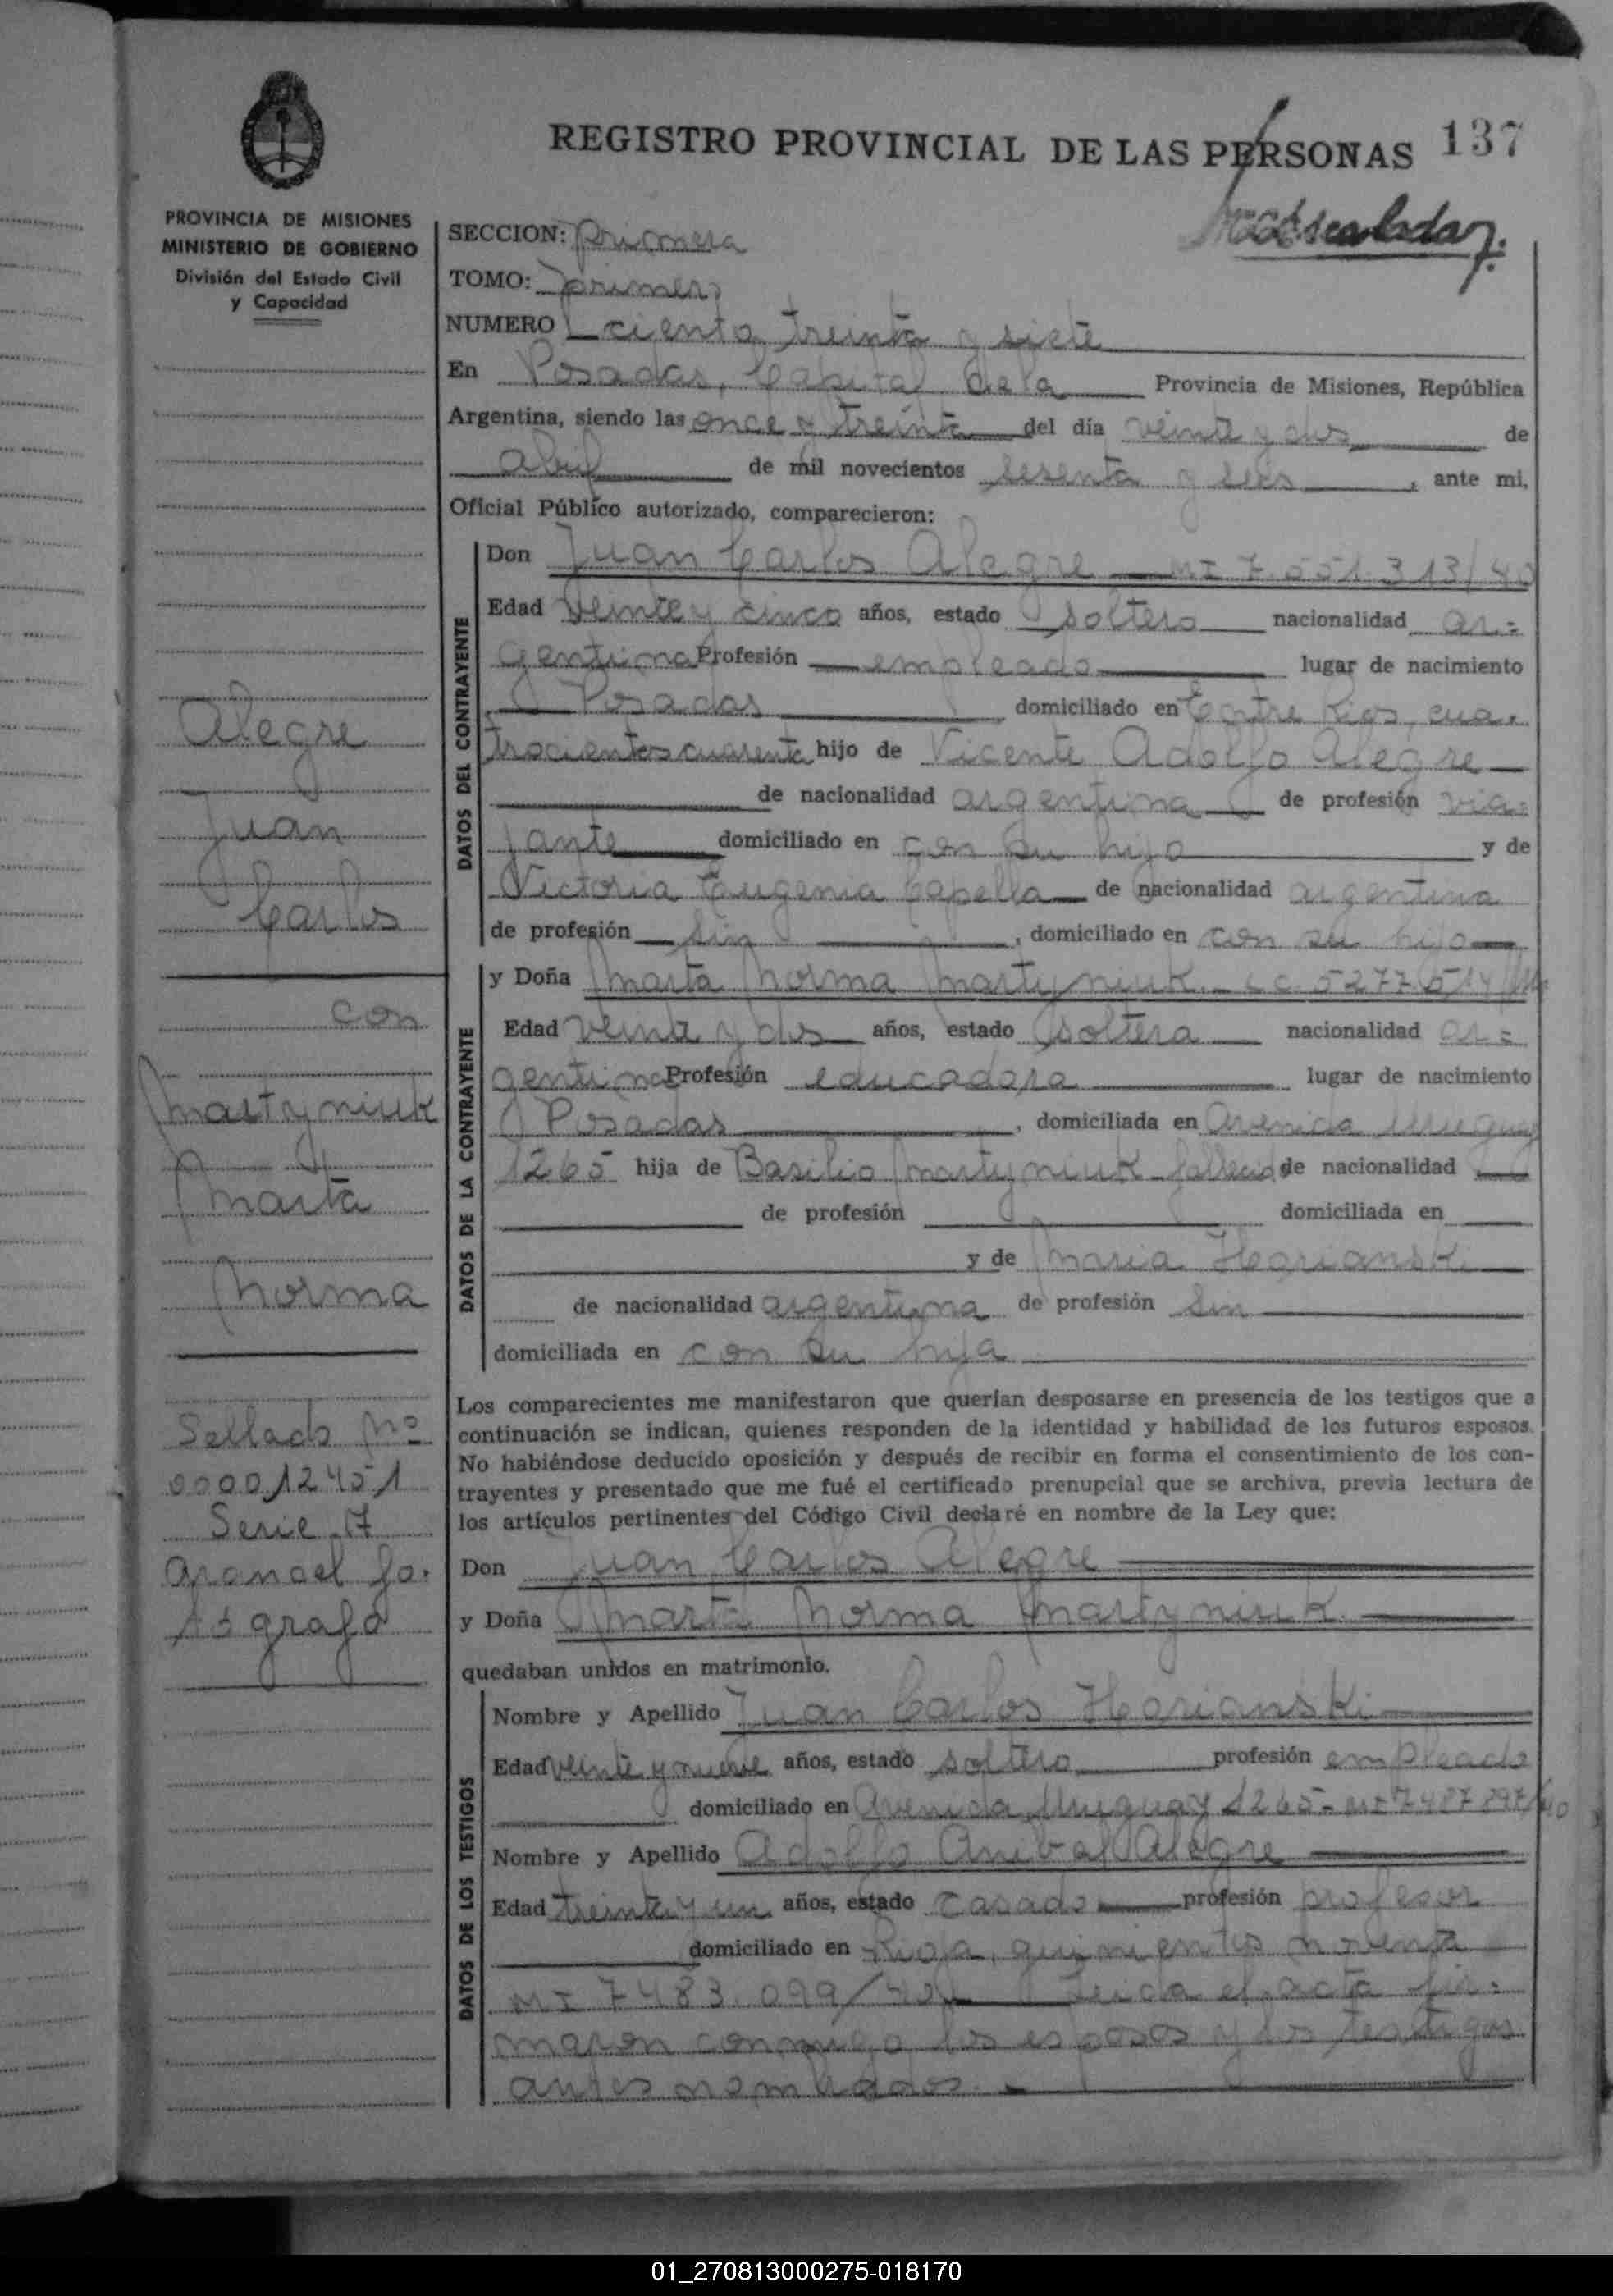 REGISTRO PROVINCIAL DE LAS PERSONAS 137
PROVINCIA DE MISIONES
MINISTERIO DE GOBIERNO
División del Estado Civil
y Capacidad
SECCION: Primera
TOMO: Primero
NUMERO ciento treinta y siete
En Posadas, Capital de la Provincia de Misiones, República
Argentina, siendo las once y treinta del día veinte y dos de
abril de mil novecientos sesenta y seis, ante mi,
Oficial Público autorizado, comparecieron:
DATOS DEL CONTRAYENTE
Don Juan Carlos Alegre MI 7.551.313/40
Edad veinte y cinco años, estado soltero nacionalidad ar=
gentina Profesión empleado lugar de nacimiento
Posadas domiciliado en Entre Rios, cua=
trocientos cuarenta hijo de Vicente Adolfo Alegre
de nacionalidad argentina de profesión via=
jante domiciliado en con su hijo y de
Victoria Eugenia Capella de nacionalidad argentina
de profesión sin, domiciliado en con su hijo
DATOS DE LA CONTRAYENTE
y Doña Marta Norma Martyniuk LC 5277.514
Edad veinte y dos años, estado soltera nacionalidad ar=
gentina Profesión educadora lugar de nacimiento
Posadas, domiciliada en Avenida Uruguay
1265 hija de Basilio Martyniuk fallecido de nacionalidad
de profesión domiciliada en
y de Maria Harianski
de nacionalidad argentina de profesión sin
domiciliada en con su hija
Los comparecientes me manifestaron que querían desposarse en presencia de los testigos que a
continuación se indican, quienes responden de la identidad y habilidad de los futuros esposos.
No habiéndose deducido oposición y después de recibir en forma el consentimiento de los con-
trayentes y presentado que me fué el certificado prenupcial que se archiva, previa lectura de
los artículos pertinentes del Código Civil declaré en nombre de la Ley que:
Don Juan Carlos Alegre
y Doña Marta Norma Martyniuk
quedaban unidos en matrimonio.
DATOS DE LOS TESTIGOS
Nombre y Apellido Juan Carlos Harianski
Edad veinte y nueve años, estado soltero profesión empleado
domiciliado en Avenida Uruguay 1265 - MI 7487897/40
Nombre y Apellido Adolfo Anibal Alegre
Edad treinta y un años, estado casado profesión profesor
domiciliado en Rioja, quinientos noventa
MI 7483.099/40 Leida el acta fir=
maron conmigo los esposos y los testigos
antes nombrados.
Alegre
Juan
Carlos
con
Martyniuk
Marta
Norma
Sellado Nº
000012451
Serie A
Arancel fo.
tografo
01_270813000275-018170